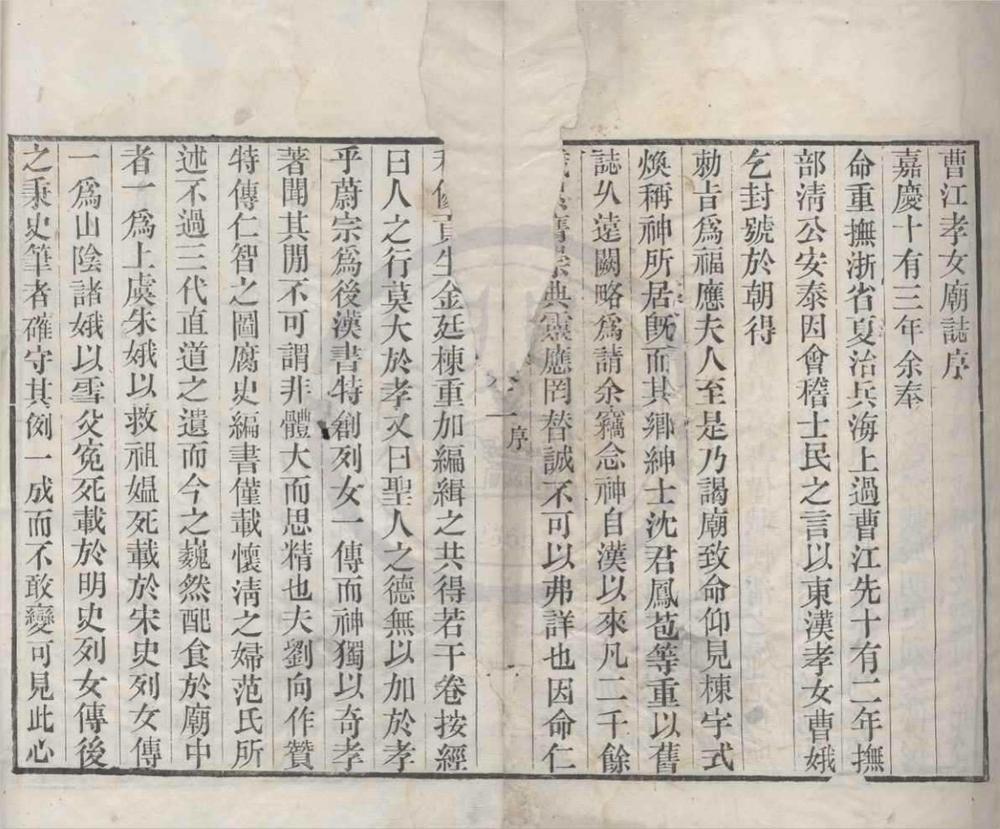 曹江孝女廟誌序
嘉慶十有三年余奉
命重撫浙省夏治兵海上過曹江先十有二年撫
部清公安泰因會稽士民之言以東漢孝女曹娥
乞封號於朝得
勅旨爲福應夫人至是乃謁廟致命仰見棟宇式
煥稱神所居旣而其鄉紳士沈君鳳苞等重以舊
誌久遠闕略爲請余竊念神自漢以來凡二千餘
典靈應罔替誠不可以弗詳也因命仁
序
生金廷棟重加編緝之共得若干卷按經
曰人之行莫大於孝又曰聖人之德無以加於孝
乎蔚宗爲後漢書特創列女一傳而神獨以奇孝
著聞其閒不可謂非體大而思精也夫劉向作贊
特傳仁智之圖腐史編書僅載懷淸之婦范氏所
述不過三代直道之遺而今之巍然配食於廟中
者一爲上虞朱娥以救祖媼死載於宋史列女傳
一爲山陰諸娥以雪父冤死載於明史列女傳後
之秉史筆者確守其例一成而不敢變可見此心